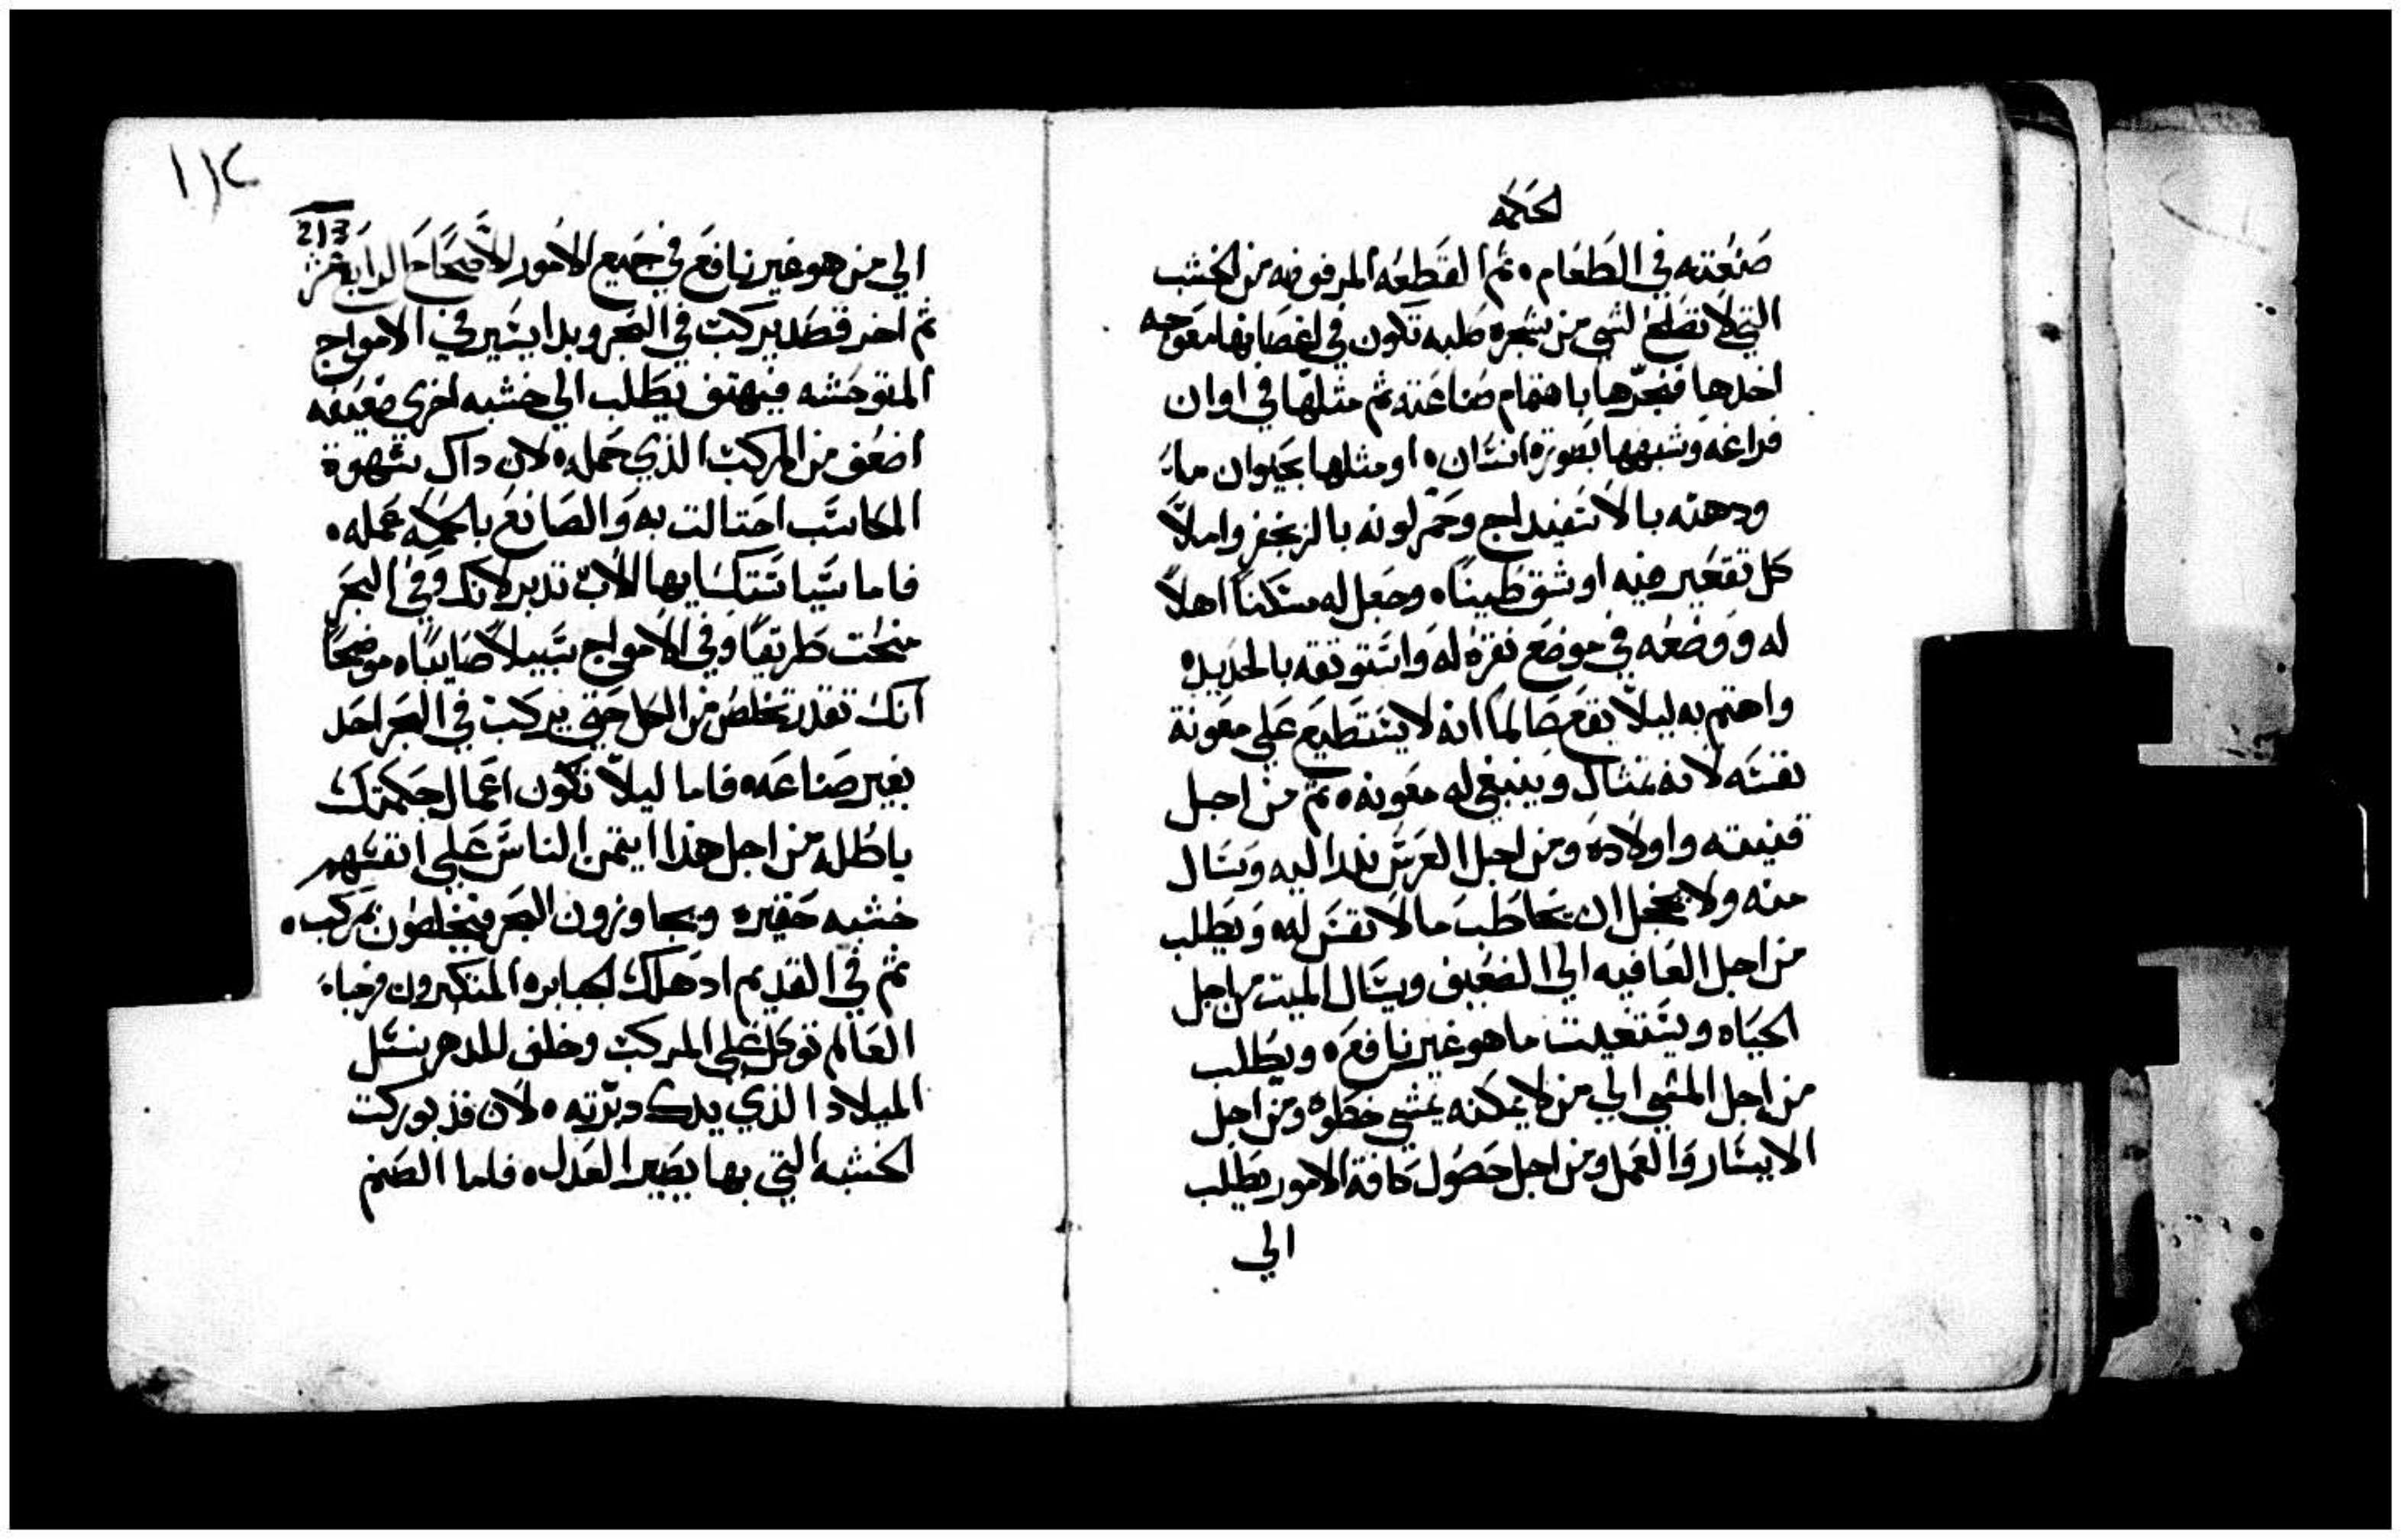 لحكمه
صنعته في الطعام ه ثم القطعه المرفوضه من الخشب
التي لا تصلح لشي من شجره صلبه تكون في اغصانها معوجه
اخدها فنجرها باهتمام صناعته ثم مثلها في اوان
فراغه وشبهها بصورة انسان ه او مثلها بحيوان ما
ودهنه بالاسفيداج وحمر لونه بالزنجفر واملا
كل تقعير فيه او شق طينا ه وجعل له مسكنا اهلا
له ووضعه في موضع نقره له واستوثقه بالحديد ه
واهتم به ليلا يقع عالما انه لا يستطيع علي معونة
نفسه لانه تمثال وينبغي له معونه ه ثم من اجل
قنيته واولاده ومن اجل العرس نذرا اليه وسال
منه ولا يخجل ان يخاطب ما لا نفس له ويطلب
من اجل العافيه الي الضعيف ويسال الميت من اجل
الحياه ويستغيت ما هو غير نافع ه ويطلب
من اجل المشي الي من لا يمكنه يمشي خطوه ومن اجل
الايسار والعمل ومن اجل حصول كافة الامور يطلب
الي
١١٤
213
الي من هو غير نافع في جميع الامور الاصحاح الرابع عشر
ثم اخر قصد يركب في البحر وبدا يسير في الامواج
المتوحشه فيهتف يطلب الي خشبه اخري ضعيفه
اضعف من المركب الذي حمله ه لان داك شهوة
المكاسب احتالت به والصانع بالحكمه عمله ه
فاما سياستك يا ايها الاب تدبر لانك وفي البحر
منحت طريقا وفي الامواج سبيلا صايبا ه موضحا
انك تقدر تخلص من الكل حتي يركب في البحر احد
بغير صناعه ه فاما ليلا تكون اعمال حكمتك
باطله من اجل هذا ايتمن الناس علي انفسهم
خشبه حقيره ويجاوزون البحر فيخلصون بمركب ه
ثم في القديم اد هلك الجبابره المتكبرون فرجاء
العالم توكل علي المركب وخلف للدهر بنسل
الميلاد الذي يدك دبرته ه لان قد بوركت
الخشبه التي بها يصير العدل ه فاما الصنم